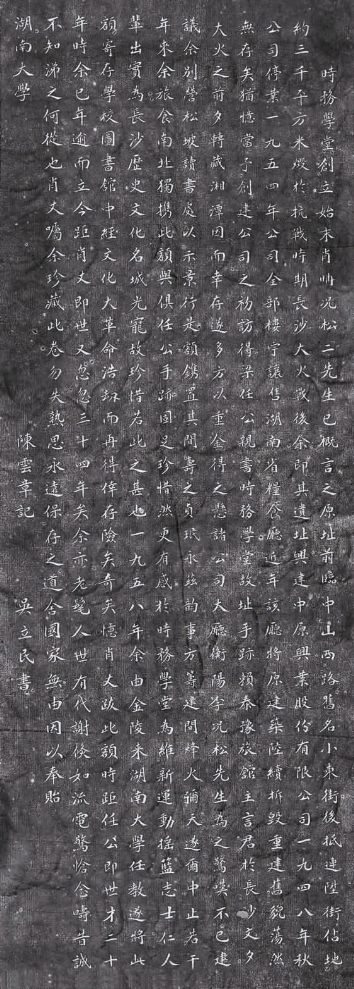 時務學堂創立始末肖峋况松二先生已概言之原址前臨中山西路舊名小東街後抵連陞街佔地
約三千平方米燬於抗戰時期長沙大火戰後余即其遺址興建中原興業股份有限公司一九四八年秋
公司停業一九五四年公司全部樓宇讓售湖南省糧食廳近年該廳將原建築陸續拆毀重建舊貌蕩然
無存矣猶憶當予創建公司之初訪得梁任公親書時務學堂故址手跡類泰豫旅館主言君於長沙文夕
大火之前夕轉藏湘潭因而幸存遂多方以重金得之懸諸公司大廳衡陽李况松先生為之驚嘆不已建
議余別營松坡讀書處以示景行是額鐫置其間壽之貞珉永茲韵事方籌建間烽火彌天遂爾中止若干
年來余旅食南北獨携此額與俱任公手跡固足珍惜然更有感於時務學堂為維新運動搖籃志士仁人
輩出實為長沙歷史文化名城光寵故珍惜若此之甚也一九五八年余由金陵來湖南大學任教遂將此
額寄存學校圖書館中經文化大革命浩劫而再得倖存險矣奇矣憶肖丈跋此額時距任公即世才三十
年時余已年逾而立今距肖丈即世又忽忽三十四年矣余亦老髦人世有代謝倏如流電驚愴念疇昔誠
不知涕之何從也肖丈囑余珍藏此卷勿失熟思永遠保存之道舍國家無由因以奉貽
湖南大學
陳雲章記
吳立民書